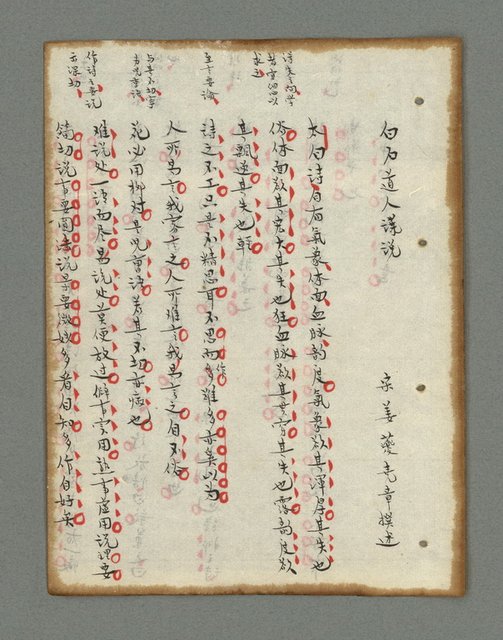 白石道人詩說 宋 姜夔堯章撰述
大凡詩自有氣象体面血脉韵度氣象欲其渾厚其失也
俗体面欲其宏大其失也狂血脉欲其貫穿其失也露韵度欲
其飄逸其失也輕
詩之不工只是不精思耳不思而作雖多亦奚以為
人所易言我寡言之人所難言我易言之自不俗
花必用柳對是兒曹語若其不切亦病也
難說處一語而尽易說處莫便放过僻事实用熟事虛用說理要
簡切說事要圓活說景要微妙多看自知多作自好矣
至言要論